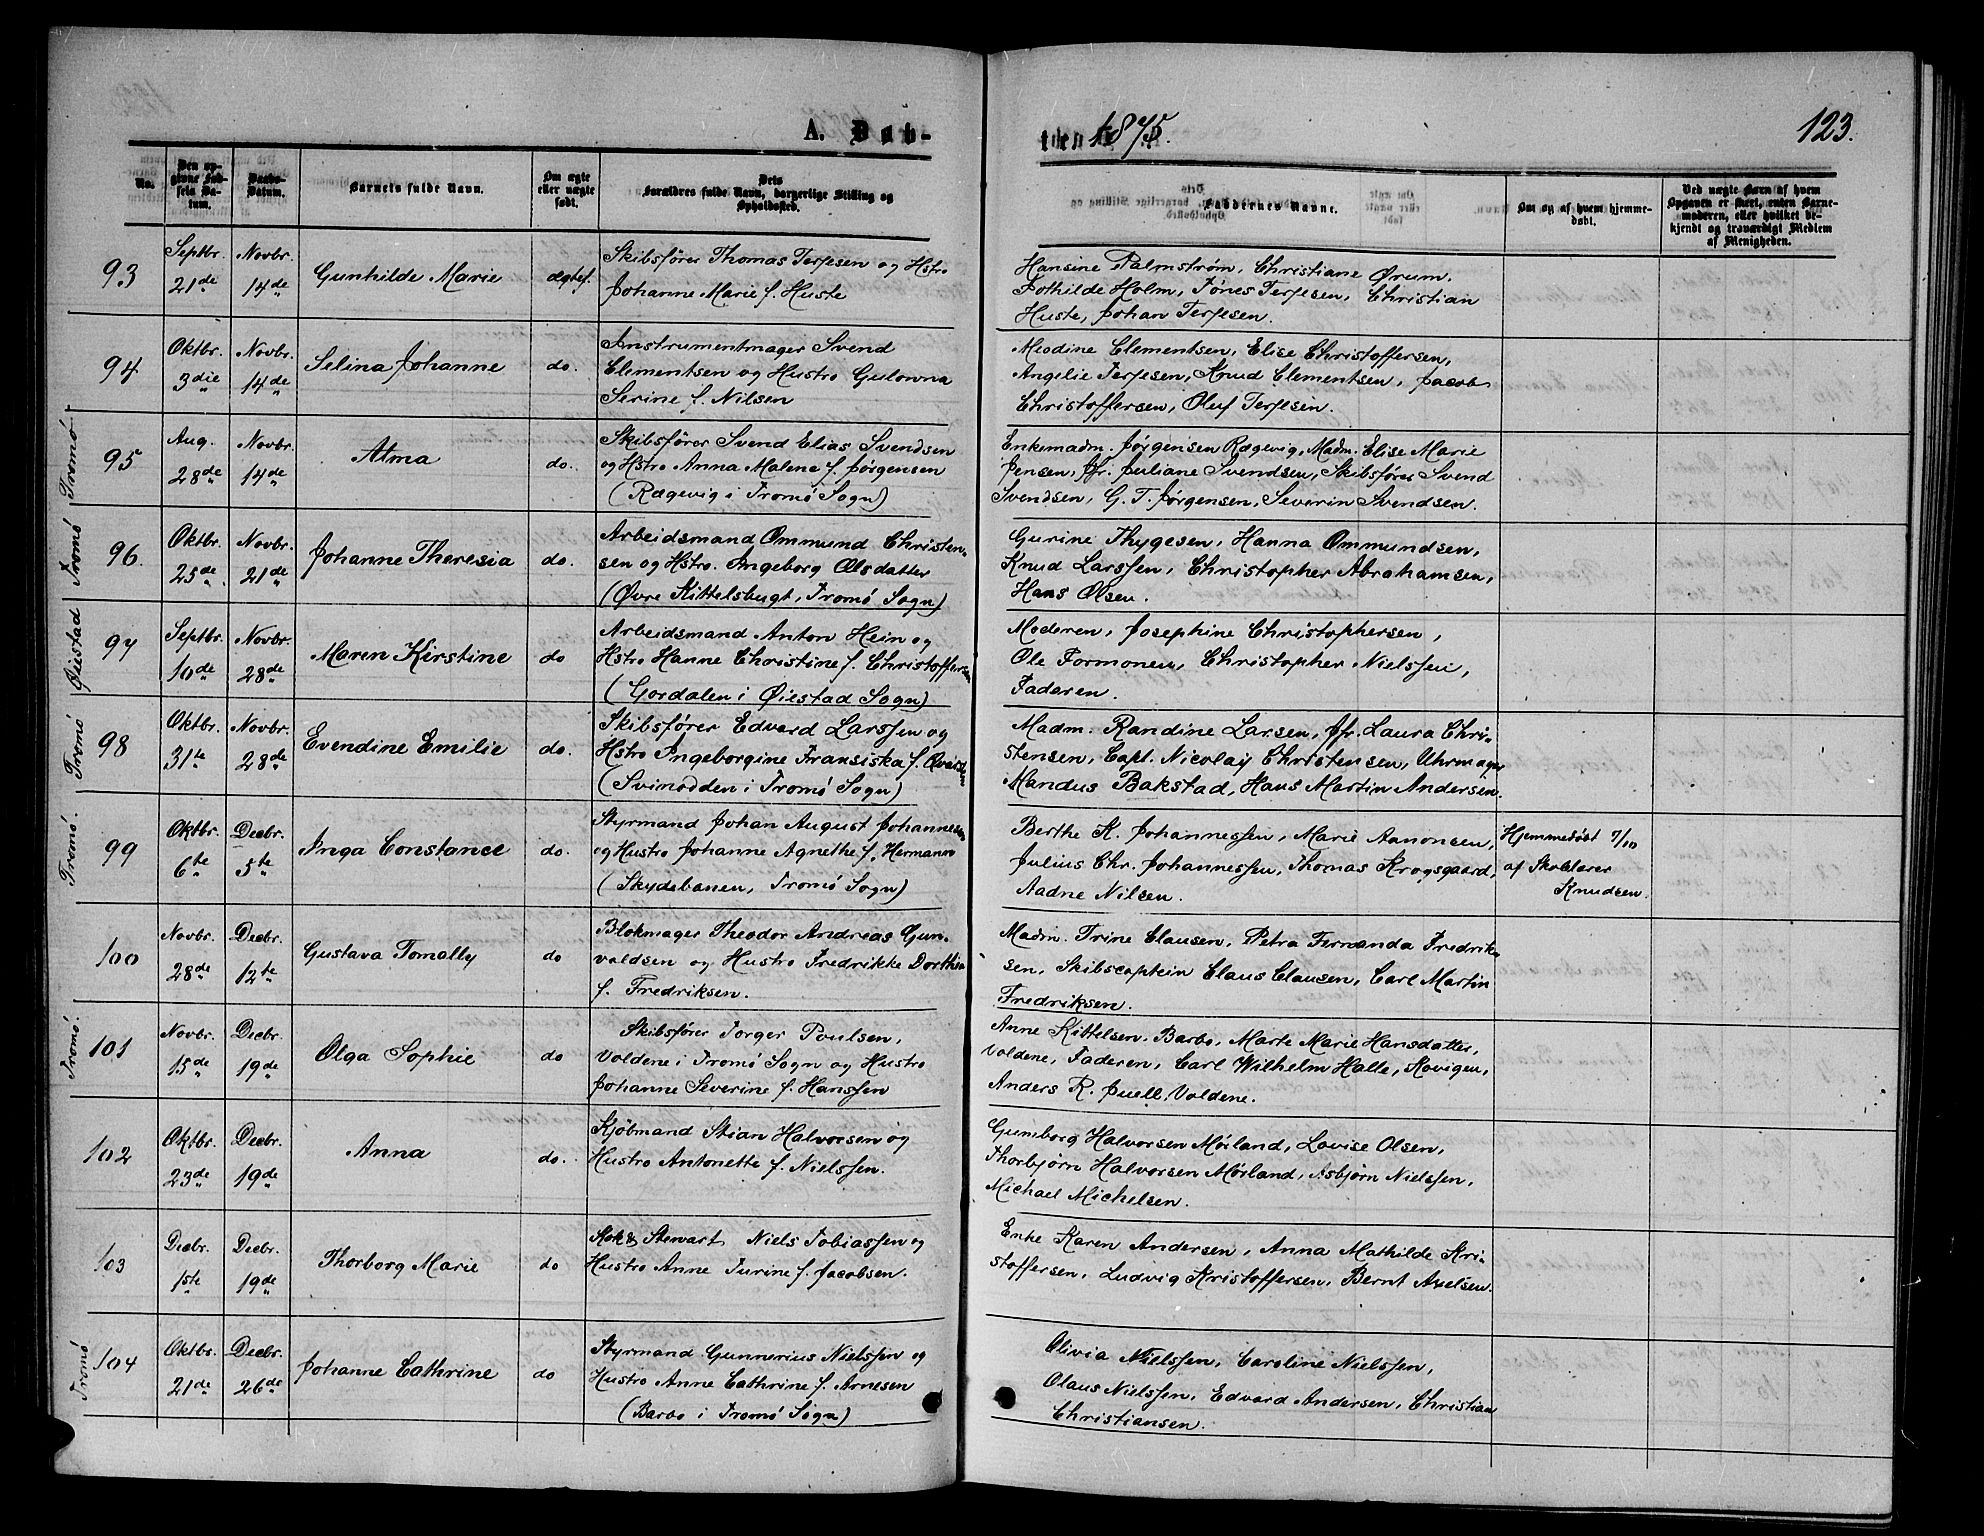 A. Døb-
No.
Den op-
givne Fød-
sels Da-
tum.
Daabs-
Datum.
Barnets fulde Navn.
Om ægte
eller uægte
født.
Dets
Forældres fulde Navn, borgerlige Stilling og
Opholdssted.
93
Septbr.
21de
Novbr.
14de
Gunhilde Marie
ægtef.
Skibsfører Thomas Terjesen og Hstro
Johanne Marie f. Huste
94
Oktbr.
3die
Novbr.
14de
Selina Johanne
do.
Instrumentmager Svend
Clementsen og Hustro Gulowna
Serine f. Nilsen
Tromö
95
Aug.
28de
Novbr.
14de
Alma
do.
Skibsfører Svend Elias Svendsen
og Hstro Anna Malene f. Jørgensen
(Rægevig i Tromö Sogn)
Tromö
96.
Oktbr.
25de
Novbr.
21de
Johanne Theresia
do.
Arbeidsmand Ommund Christen-
sen og Hstro. Ingeborg Olsdatter
(Øvre Kittelsbugt, Tromö Sogn)
Øiestad
97
Septbr.
10de
Novbr.
28de
Maren Kirstine
do
Arbeidsmand Anton Hein og
Hstro Hanne Christine f. Christoffersen
(Gordalen i Øiestad Sogn)
Tromö
98
Oktbr.
31te
Novbr.
28de
Evendine Emilie
do.
Skibsfører Edvard Larssen og
Hstro Ingeborgine Fransiska f.
(Svinodden i Tromö Sogn)
Tromö.
99
Oktbr.
6te
Decbr.
5te
Inga Constance
do.
Styrmand Johan August Johannesen
og Hustro Johanne Agnethe f. Hermann
(Skydebanen, Tromö Sogn)
100
Novbr.
28de
Decbr.
12te
Gustava Tomally
do
Blokmager Theodor Andreas Gun-
valdsen og Hustro Fredrikke Dorthea
f. Fredriksen.
Tromö.
101
Novbr.
15de
Decbr.
19de
Olga Sophie
do
Skibsfører Torger Poulsen,
Voldene i Tromö Sogn og Hustro
Johanne Severine f. Hanssen
102
Oktbr.
23de
Decbr.
19de
Anna
do.
Kjöbmand Stian Halvorsen og
Hustro Antonette f. Nielssen.
103
Decbr.
1ste
Decbr.
19de
Thorborg Marie
do
Kok & Stewart Niels Tobiassen og
Hustro Anne Turine f. Jacobsen.
Tromö
104
Oktbr.
21de
Decbr.
26de
Johanne Cathrine
do
Styrmand Gunnerius Nielssen og
Hustro Anne Cathrine f. Arnesen
(Barbo i Tromö Sogn)
1875.
123.
Faddernes Navne.
Om og af hvem hjemme-
døbt.
Ved uægte Børn af hvem
Opgaven er skeet, enten Barne-
moderen, eller hvilket be-
kjendt og troværdigt Medlem
af Menigheden.
Hansine Palmstrøm, Christiane Ørum,
Bothilde Holm, Tönes Terjesen, Christian
Huste, Johan Terjesen.
Meodine Clementsen, Elise Christoffersen,
Angelie Terjesen, Knud Clementsen, Jacob
Christoffersen, Oluf Terjesen.
Enkemadm. Jørgensen Rægevig, Madm. Elise Marie
Jensen, Jfr. Juliane Svendsen, Skibsfører Svend
Svendsen, G. T. Jørgensen, Severin Svendsen.
Gurine Thygesen, Hanna Ommundsen,
Knud Larssen, Christopher Abrahamsen,
Hans Olsen.
Moderen, Josephine Christophersen,
Ole Formonen, Christopher Nielssen,
Faderen.
Madm. Randine Larsen, Jfr. Laura Chri-
stensen, Capt. Nicolay Christensen, Uhrmager
Mandus Bakstad, Hans Martin Andersen.
Berthe K. Johannessen, Marie Aanonsen,
Julius Chr. Johannessen, Thomas Krogsgaard,
Aadne Nilsen.
Hjemmedøbt 7/10
af Skolelærer
Knudsen.
Madm. Trine Clausen, Petra Fernanda Fredrik-
sen, Skibscaptein Claus Clausen, Carl Martin
Fredriksen.
Anne Kittelsen, Barbo, Marte Marie Hansdatter,
Voldene, Faderen, Carl Wilhelm Halle, Kovigen,
Anders R. Juell, Voldene.
Gumborg Halvorsen Mørland, Lovise Olsen,
Thorbjørn Halvorsen Mørland, Asbjørn Nielssen,
Michael Michelsen.
Enke Karen Andersen, Anna Mathilde Kri-
stoffersen, Ludvig Kristoffersen, Bernt Axelsen.
Olivia Nielssen, Caroline Nielssen,
Olaus Nielssen, Edvard Andersen, Christian
Christiansen.